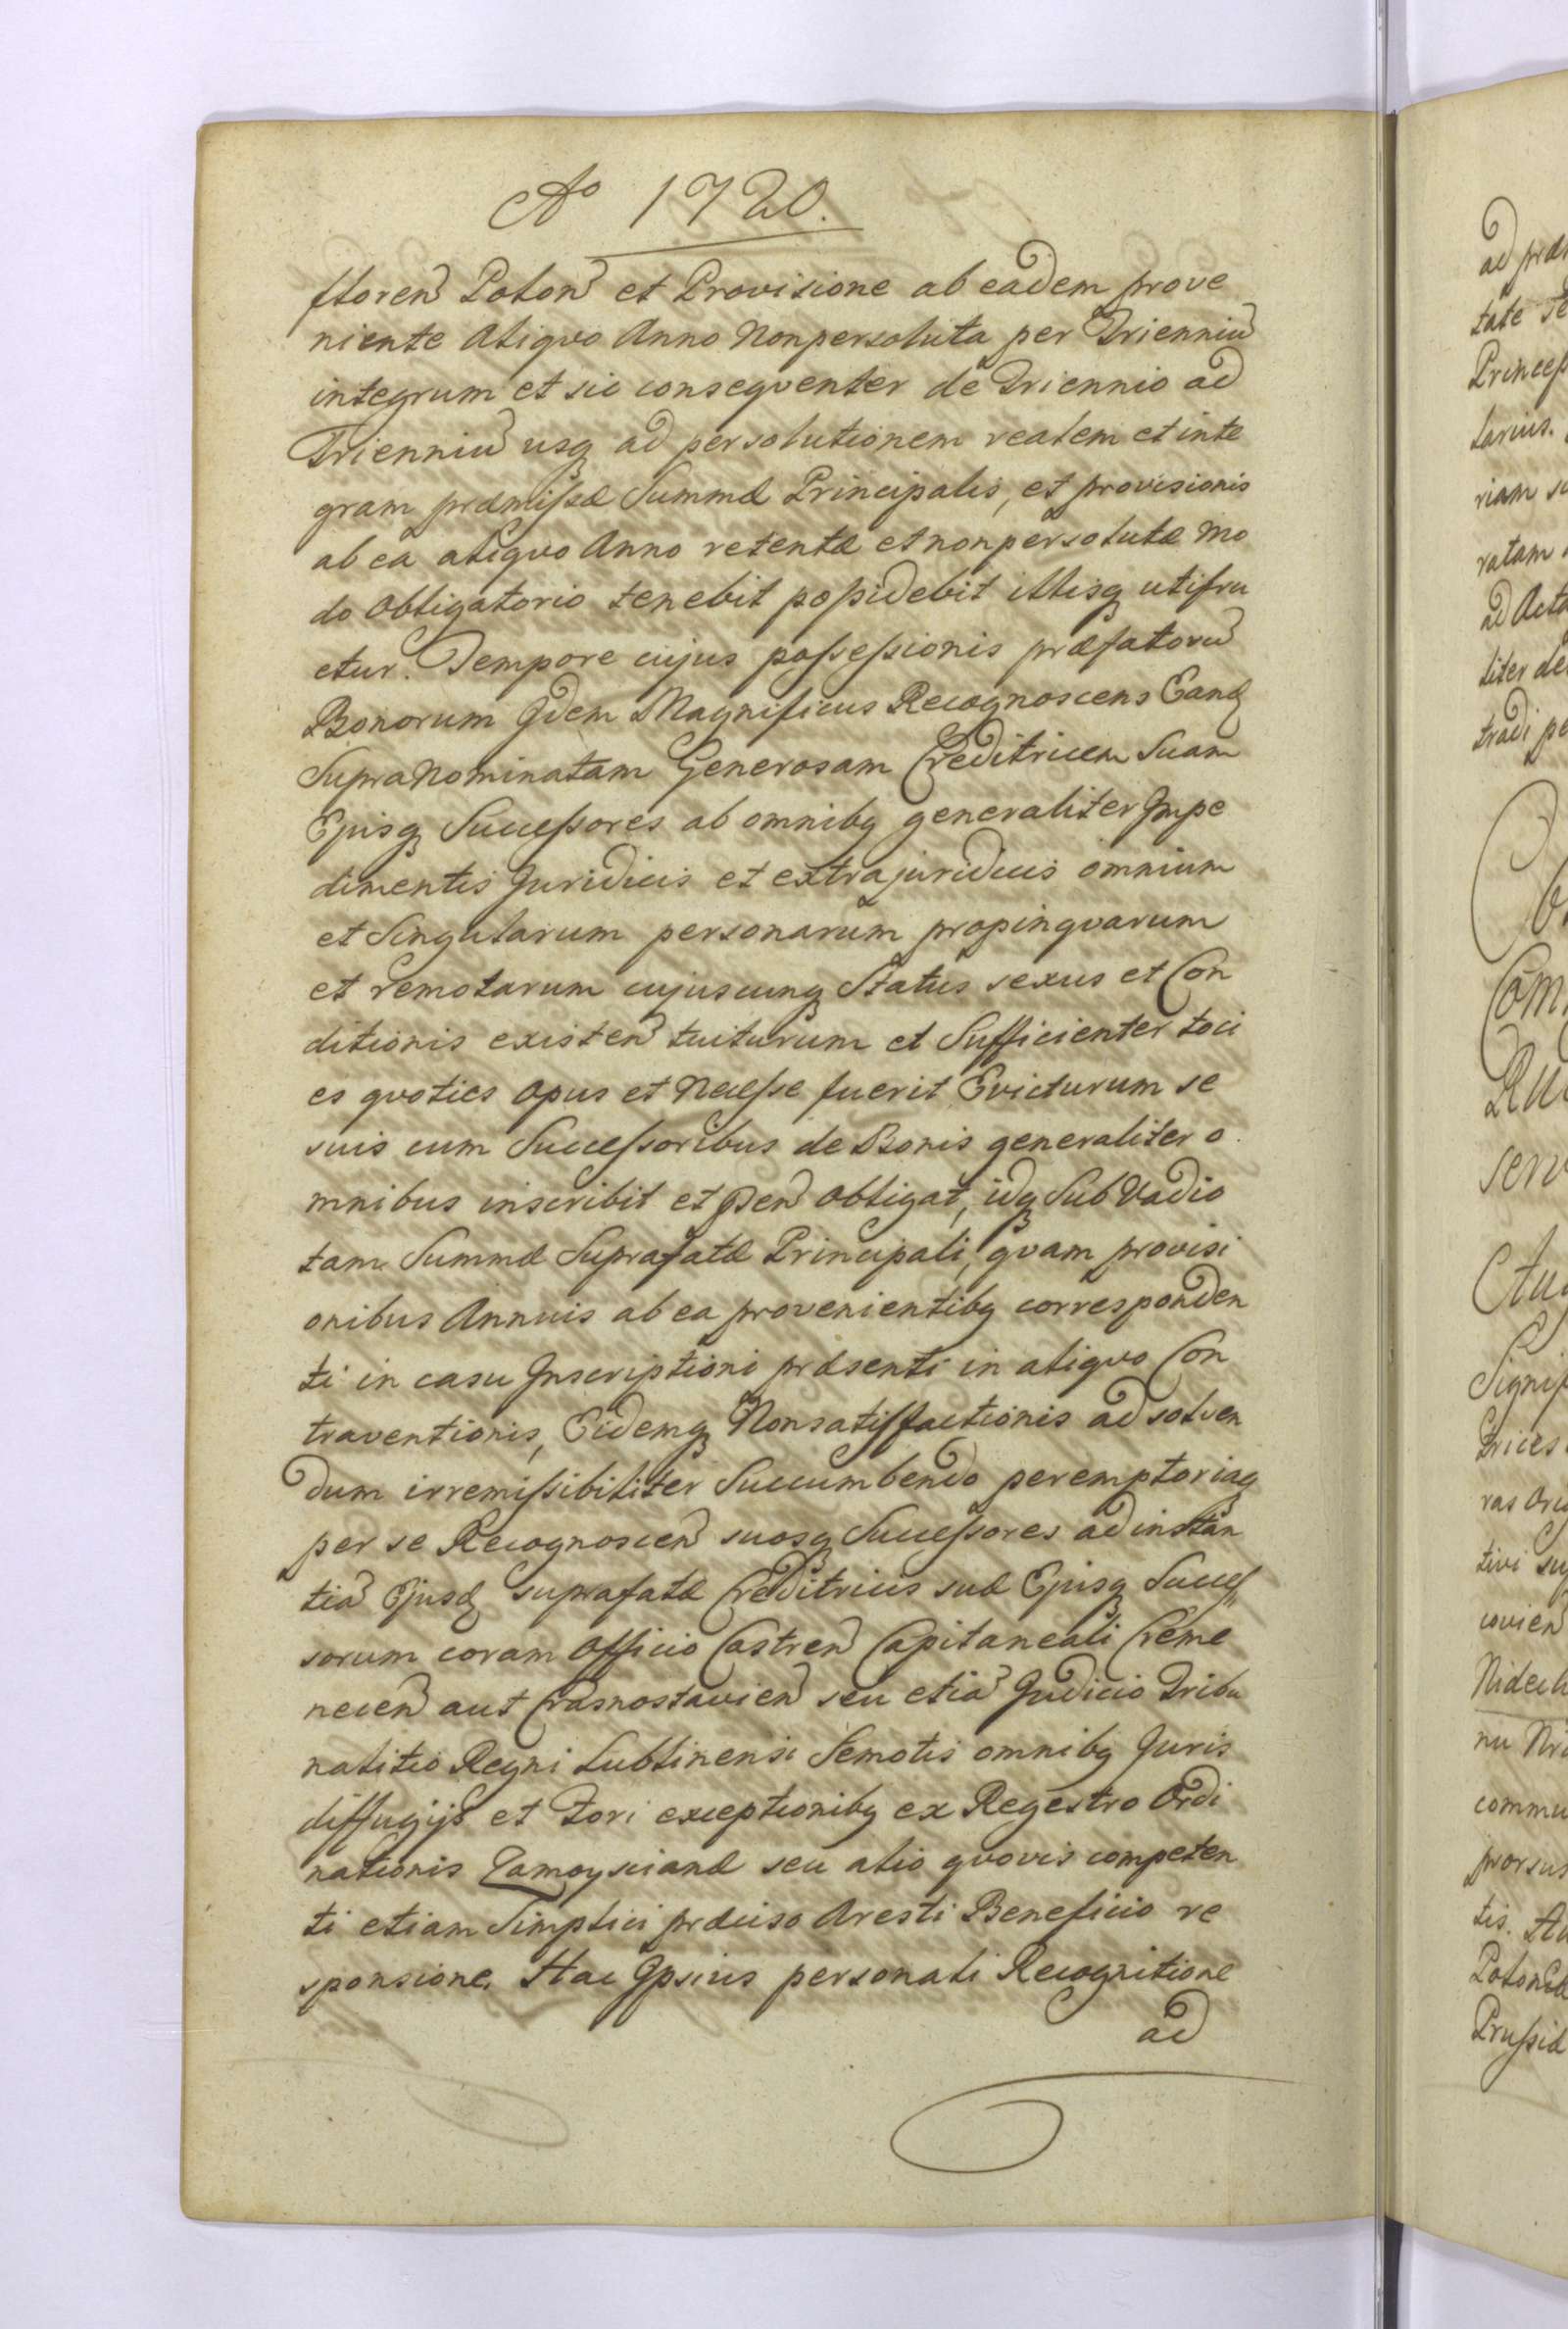 Ao 1720.
floren Polon et Provisione ab eadem prove
niente aliqvo Anno Nonpersoluta per Trienniu
integrum et sic conseqventer de Triennio ad
Trienniu usq ad persolutionem realem et inte
gram præmissæ Summæ Principalis, et provisionis
ab ea aliqvo Anno retentæ et nonpersolutæ mo
do obligatorio tenebit possidebit illisq utifru
etur. Tempore cujus possessionis præfatoru
Bonorum Idem Magnificus Recognoscens Eand
SupraNominatam Generosam Creditricem Suam
Ejusq Successores ab omnibq generaliter Impe
dimentis Juridicis et extrajuridicis omnium
et Singularum personarum propinqvarum
et remotarum cujuscunq Status sexus et Con
ditionis existen tuiturum et Sufficienter toci
es qvoties opus et Necesse fuerit Evicturum se
suis cum Successoribus de Bonis generaliter o
mnibus inscribit et psen obligat, idq Sub Vadio
tam Summæ Suprafatæ Principali, qvam provisi
onibus Annuis ab ea provenientibq corresponden
ti in casu Inscriptioni præsenti in aliqvo Con
traventionis, Eidemq Nonsatisfactionis ad solven
dum irremissibiliter Succumbendo peremptoriaq
per se Recognoscen suosq Successores ad instan
tia Ejusd suprafatæ Creditricis suæ Ejusq Succes
sorum coram Officio Castren Capitaneali Creme
necen aut Crasnostavien seu etia Judicio Tribu
nalitio Regni Lublinensi Semotis omnibq Juris
diffugijs et Fori exceptionibq ex Regestro Ordi
nationis Zamoyscianæ seu alio qvovis competen
ti etiam Simplici præciso Aresti Beneficio re
sponsione. Hac Ipsius personali Recognitione
ad